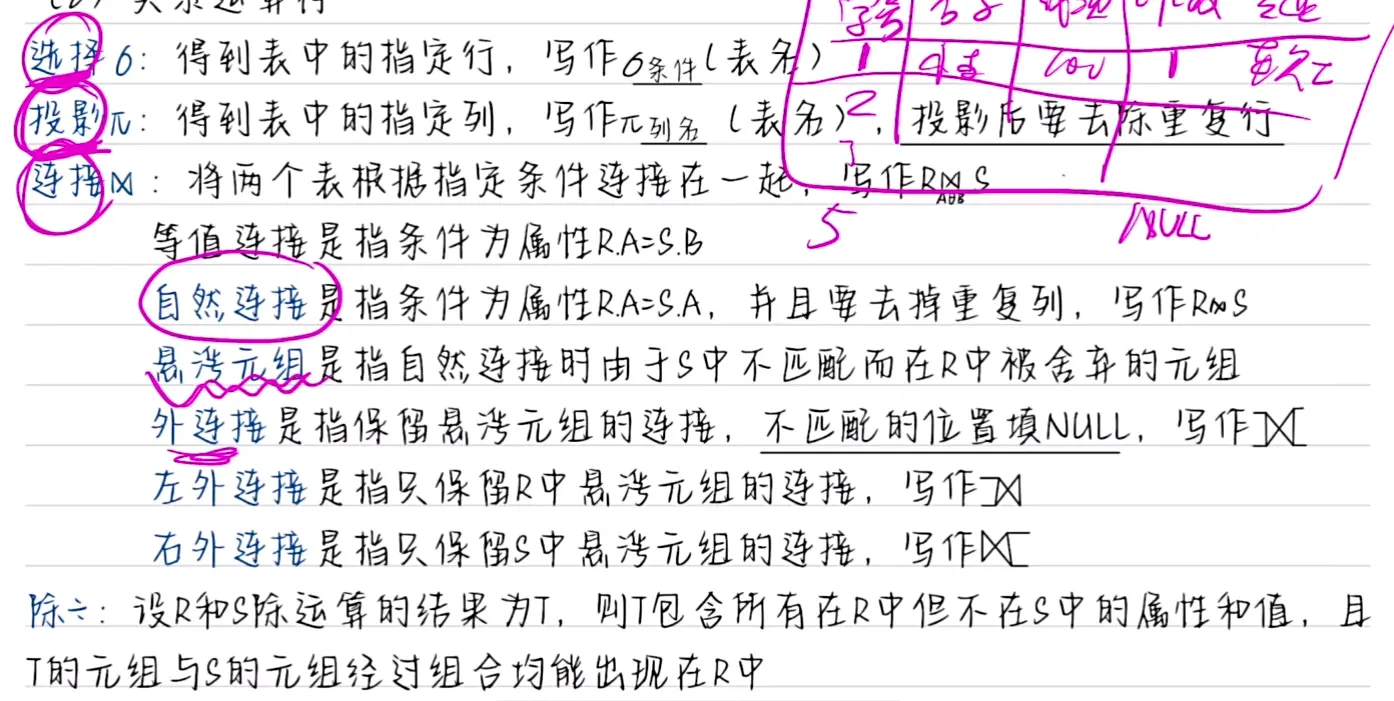 (2) 关系运算符
学号
选择σ：得到表中的指定行，写作σ条件(表名)
1 100 1
投影π：得到表中的指定列，写作π列名(表名)，投影后要去除重复行
2
3
连接⋈：将两个表根据指定条件连接在一起，写作R⋈S
AθB
5 NULL
等值连接是指条件为属性R.A=S.B
自然连接是指条件为属性R.A=S.A，并且要去掉重复列，写作R⋈S
悬浮元组是指自然连接时由于S中不匹配而在R中被舍弃的元组
外连接是指保留悬浮元组的连接，不匹配的位置填NULL，写作⟗
左外连接是指只保留R中悬浮元组的连接，写作⟕
右外连接是指只保留S中悬浮元组的连接，写作⟖
除÷：设R和S除运算的结果为T，则T包含所有在R中但不在S中的属性和值，且
T的元组与S的元组经过组合均能出现在R中